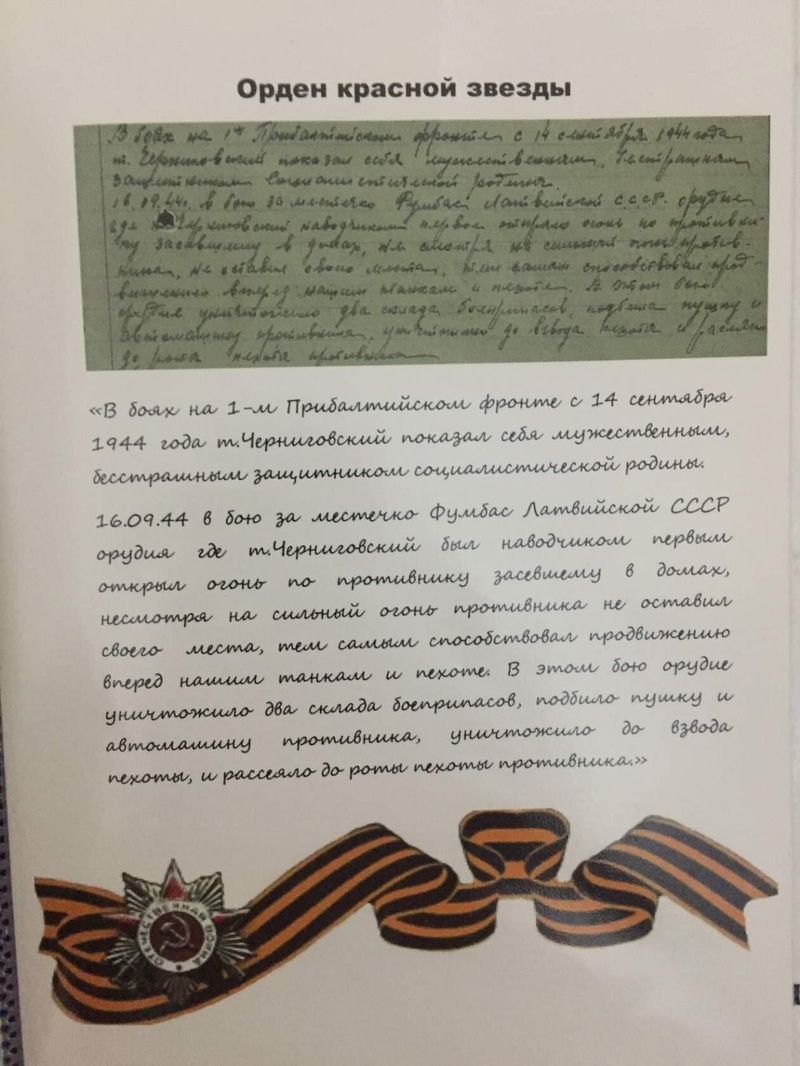 Орден красной звезды
В боях на 1м Прибалтийском фронте с 14 сентября 1944 года
т. Черниговский показал себя мужественным, бесстрашным
защитником социалистической родины.
16.09.44г. в бою за местечко Фумбас Латвийской С.С.С.Р. орудие
где т. Черниговский наводчиком первое открыло огонь по противни-
ку засевшему в домах, не смотря на сильный огонь против-
ника, не оставил своего места, тем самым способствовал прод-
вижению вперед нашим танкам и пехоте. В этом бою
орудие уничтожило два склада боеприпасов, подбило пушку и
автомашину противника, уничтожило до взвода пехоты и рассеяло
до роты пехоты противника
«В боях на 1-м Прибалтийском фронте с 14 сентября
1944 года т.Черниговский показал себя мужественным,
бесстрашным защитником социалистической родины.
16.09.44 в бою за местечко Фумбас Латвийской СССР
орудия где т.Черниговский был наводчиком первым
открыл огонь по противнику засевшему в домах,
несмотря на сильный огонь противника не оставил
своего места, тем самым способствовал продвижению
вперед нашим танкам и пехоте. В этом бою орудие
уничтожило два склада боеприпасов, подбило пушку и
автомашину противника, уничтожило до взвода
пехоты, и рассеяло до роты пехоты противника.»
ОТЕЧЕСТВЕННАЯ ВОЙНА